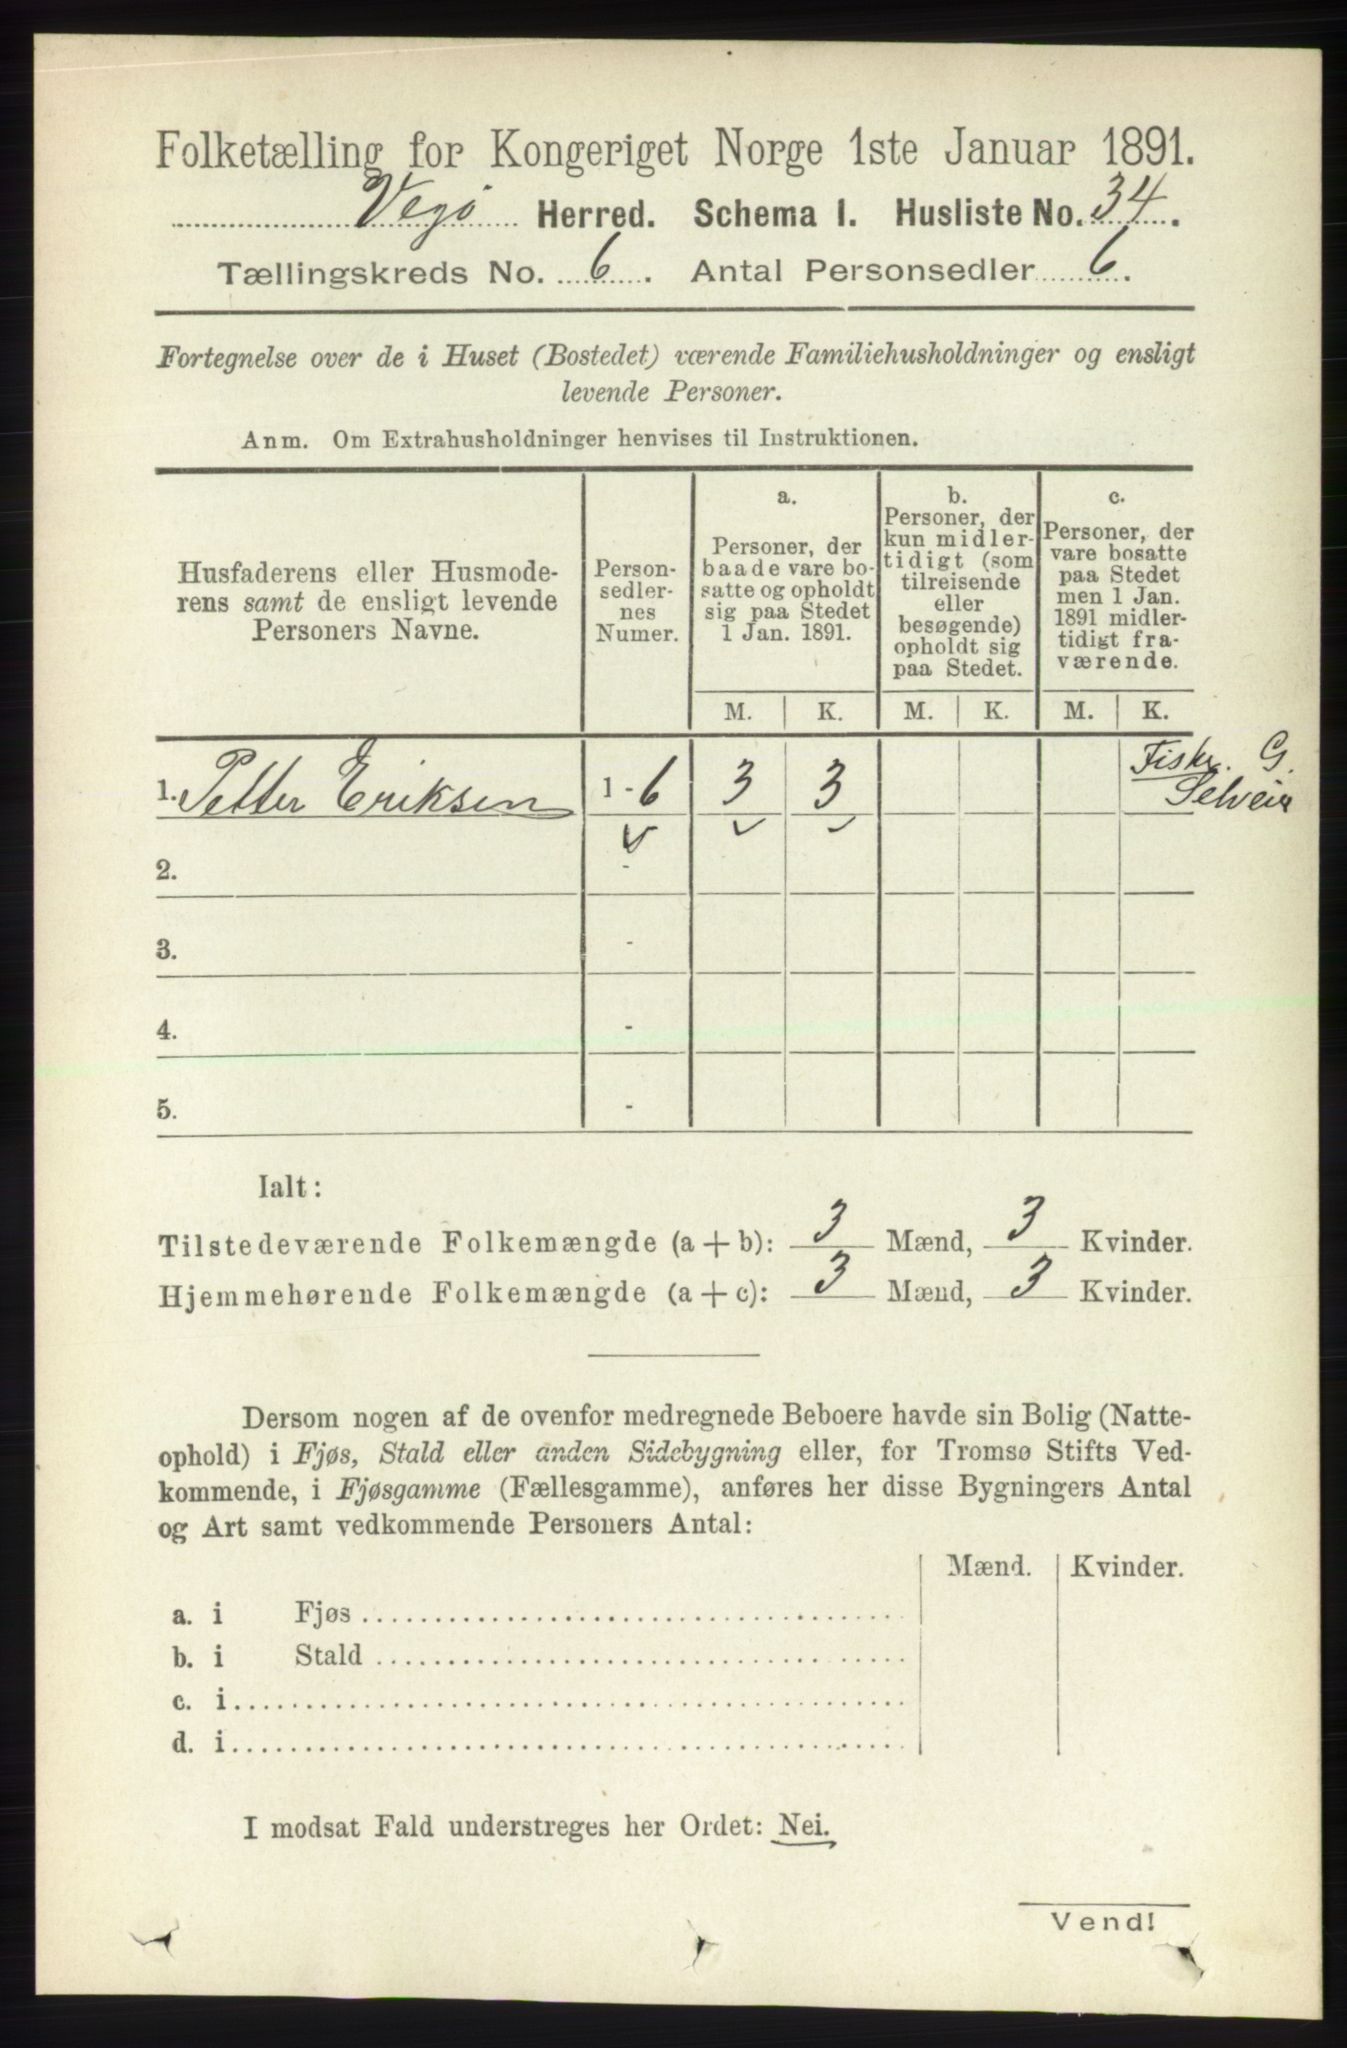 Folketælling for Kongeriget Norge 1ste Januar 1891.
Vegø Herred. Schema I. Husliste No. 34.
Tællingskreds No. 6. Antal Personsedler 6.
Fortegnelse over de i Huset (Bostedet) værende Familiehusholdninger og ensligt
levende Personer.
Anm. Om Extrahusholdninger henvises til Instruktionen.
Husfaderens eller Husmode-
rens samt de ensligt levende
Personers Navne.
Person-
sedler-
nes
Numer.
a.
Personer, der
baade vare bo-
satte og opholdt
sig paa Stedet
1 Jan. 1891.
b.
Personer, der
kun midler-
tidigt (som
tilreisende
eller
besøgende)
opholdt sig
paa Stedet.
c.
Personer, der
vare bosatte
paa Stedet
men 1 Jan.
1891 midler-
tidigt fra-
værende.
M. K. M. K. M. K.
1. Petter Eriksen 1 - 6 3 3 Fiskr. G.
Selveier
2. -
3. -
4. -
5. -
Ialt:
Tilstedeværende Folkemængde (a + b): 3 Mænd, 3 Kvinder.
Hjemmehørende Folkemængde (a + c): 3 Mænd, 3 Kvinder.
Dersom nogen af de ovenfor medregnede Beboere havde sin Bolig (Natte-
ophold) i Fjøs, Stald eller anden Sidebygning eller, for Tromsø Stifts Ved-
kommende, i Fjøsgamme (Fællesgamme), anføres her disse Bygningers Antal
og Art samt vedkommende Personers Antal:
Mænd. Kvinder.
a. i Fjøs
b. i Stald
c. i
d. i
I modsat Fald understreges her Ordet: Nei.
Vend!